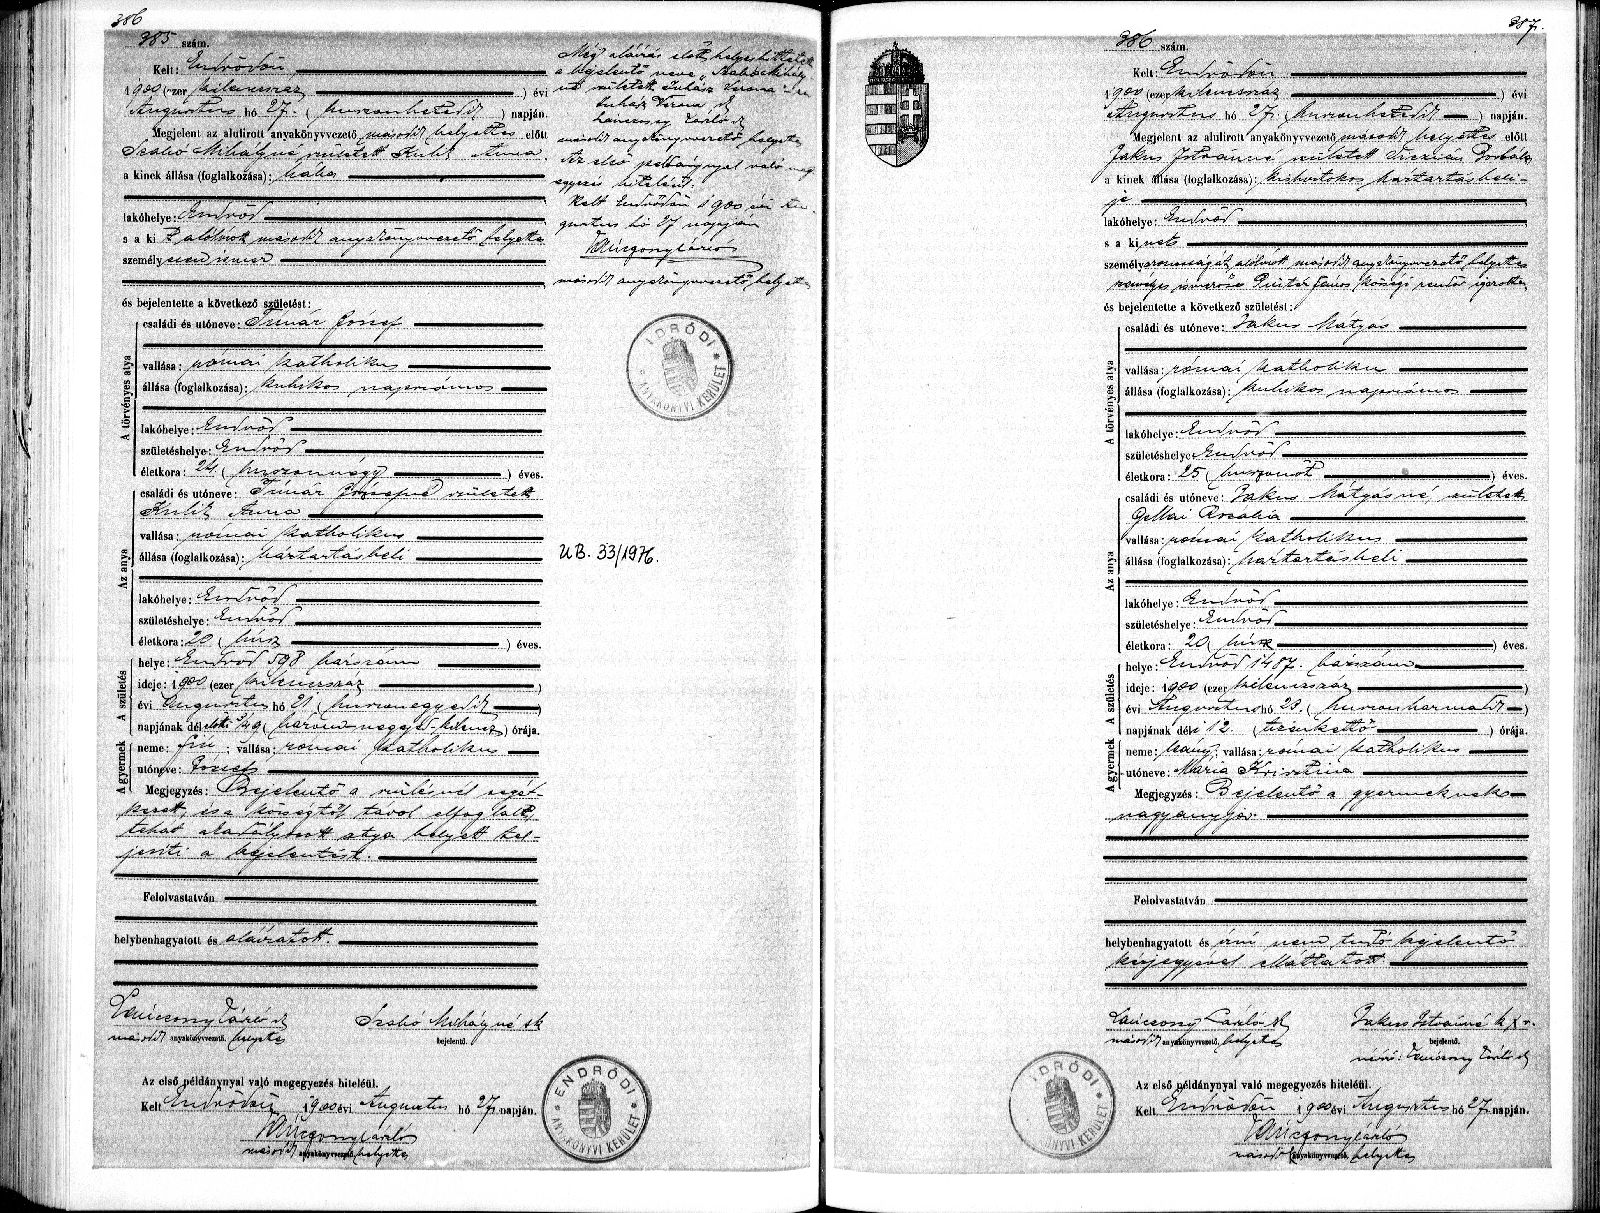 386
385 szám.
Kelt: Endrődön
1900 (ezer kilencszáz) évi
Augusztus hó 27. (huszonhetedik) napján.
Megjelent az alulirott anyakönyvvezető másodk helyettes előtt
Szabó Mihályné született Kulik Anna
a kinek állása (foglalkozása): bába
lakóhelye: Endrőd
s a ki alólirott másodk anyakönyvvezető helyettes
személyesen ismer
és bejelentette a következő születést:
A törvényes atya
családi és utóneve: Timár József
vallása: római katholikus
állása (foglalkozása): kubikos napszámos
lakóhelye: Endrőd
születéshelye: Endrőd
életkora: 24 (huszonnégy) éves.
Az anya
családi és utóneve: Timár Józsefné született
Kulik Anna
vallása: római katholikus
állása (foglalkozása): háztartásbeli
lakóhelye: Endrőd
születéshelye: Endrőd
életkora: 20 (húsz) éves.
A születés
helye: Endrőd 598 házszám
ideje: 1900 (ezer kilencszáz)
évi Augusztus hó 21 (huszonegyedik)
napjának dél előtti 3/49 (háromnegyed kilencz) órája.
A gyermek
neme: fiú; vallása: római katholikus
utóneve: József
Megjegyzés: Bejelentő a szülésnél segéd-
kezett, és a községtől távol elfoglalt,
tehát akadályozott atya helyett tel-
jesiti a bejelentést.
Felolvastatván
helybenhagyatott és aláíratott.
másodk anyakönyvvezető, helyettes
Szabó Mihályné sk
bejelentő.
Az első példánynyal való megegyezés hiteléül.
Kelt Endrődön 1900 évi Augusztus hó 27. napján.
másodk anyakönyvvezető, helyettes
ENDRŐDI ANYAKÖNYVI KERÜLET
Még aláírás előtt helyesbittetett
a bejelentő neve "Szabó Mihály
né született Juhász Verona"
Juhász Verona
másodk anyakönyvvezető helyettes
Az első példánynyal való meg
egyezés hiteléül.
Kelt Endrődön 1900 évi Au-
gusztus hó 27 napján
másodk anyakönyvvezető helyettes
IDRŐDI ANYAKÖNYVI KERÜLET
UB. 33/1976.
387.
386 szám.
Kelt: Endrődön
1900 (ezer kilencszáz) évi
Augusztus hó 27. (huszonhetedik) napján.
Megjelent az alulirott anyakönyvvezető másodk helyettes előtt
Jakus Istvánné született Borbála
a kinek állása (foglalkozása): kisbirtokos háztartásbeli-
je
lakóhelye: Endrőd
s a kinek
személyazonosságát alólirott másodk anyakönyvvezető helyettes
személyes ismerőse Pintér János községi rendőr igazolta
és bejelentette a következő születést:
A törvényes atya
családi és utóneve: Jakus Mátyás
vallása: római katholikus
állása (foglalkozása): kubikos napszámos
lakóhelye: Endrőd
születéshelye: Endrőd
életkora: 25 (huszonöt) éves.
Az anya
családi és utóneve: Jakus Mátyásné, született
Gellai Rozália
vallása: római katholikus
állása (foglalkozása): háztartásbeli
lakóhelye: Endrőd
születéshelye: Endrőd
életkora: 20 (húsz) éves.
A születés
helye: Endrőd 1487. házszám
ideje: 1900 (ezer kilencszáz)
évi Augusztus hó 23. (huszonharmadik)
napjának déli 12. (tizenkettő) órája.
A gyermek
neme: leány; vallása: római katholikus
utóneve: Mária Krisztina
Megjegyzés: Bejelentő a gyermeknek
nagyanyja.
Felolvastatván
helybenhagyatott és írni nem tudó bejelentő
kézjegyével elláttatott
másodk anyakönyvvezető, helyettes
Jakus Istvánné k X v.
bejelentő.
Az első példánynyal való megegyezés hiteléül.
Kelt Endrődön 1900 évi Augusztus hó 27. napján.
másodk anyakönyvvezető, helyettes
IDRŐDI ANYAKÖNYVI KERÜLET